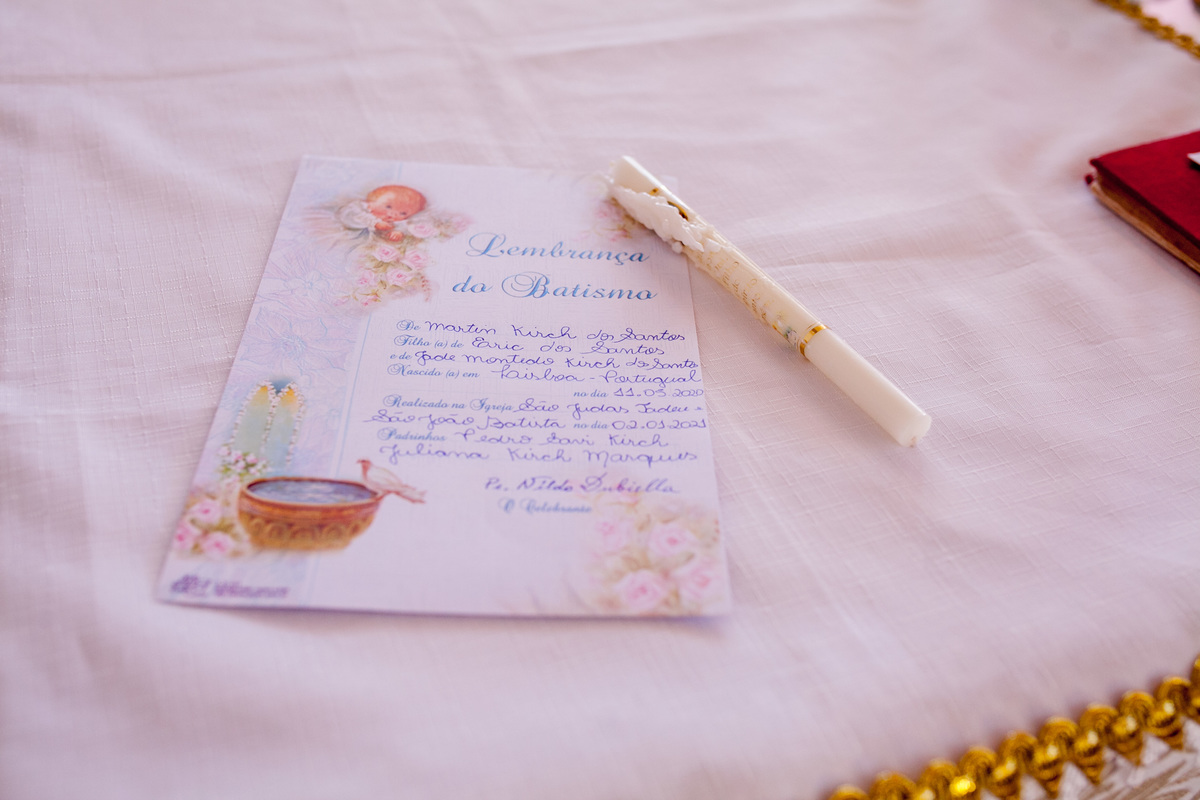 Lembrança
do Batismo
De Martin Kirch dos Santos
Filho (a) de Eric dos Santos
e de Jade Montedo Kirch dos Santos
Nascido (a) em Laisboa - Portugual
no dia 11.05.2020
Realizado na Igreja São Judas Tadeu e
São João Batista no dia 02.01.2021
Padrinhos Pedro Savi Kirch
Juliana Kirch Marques
Pe. Nildo Dubiella
O Celebrante